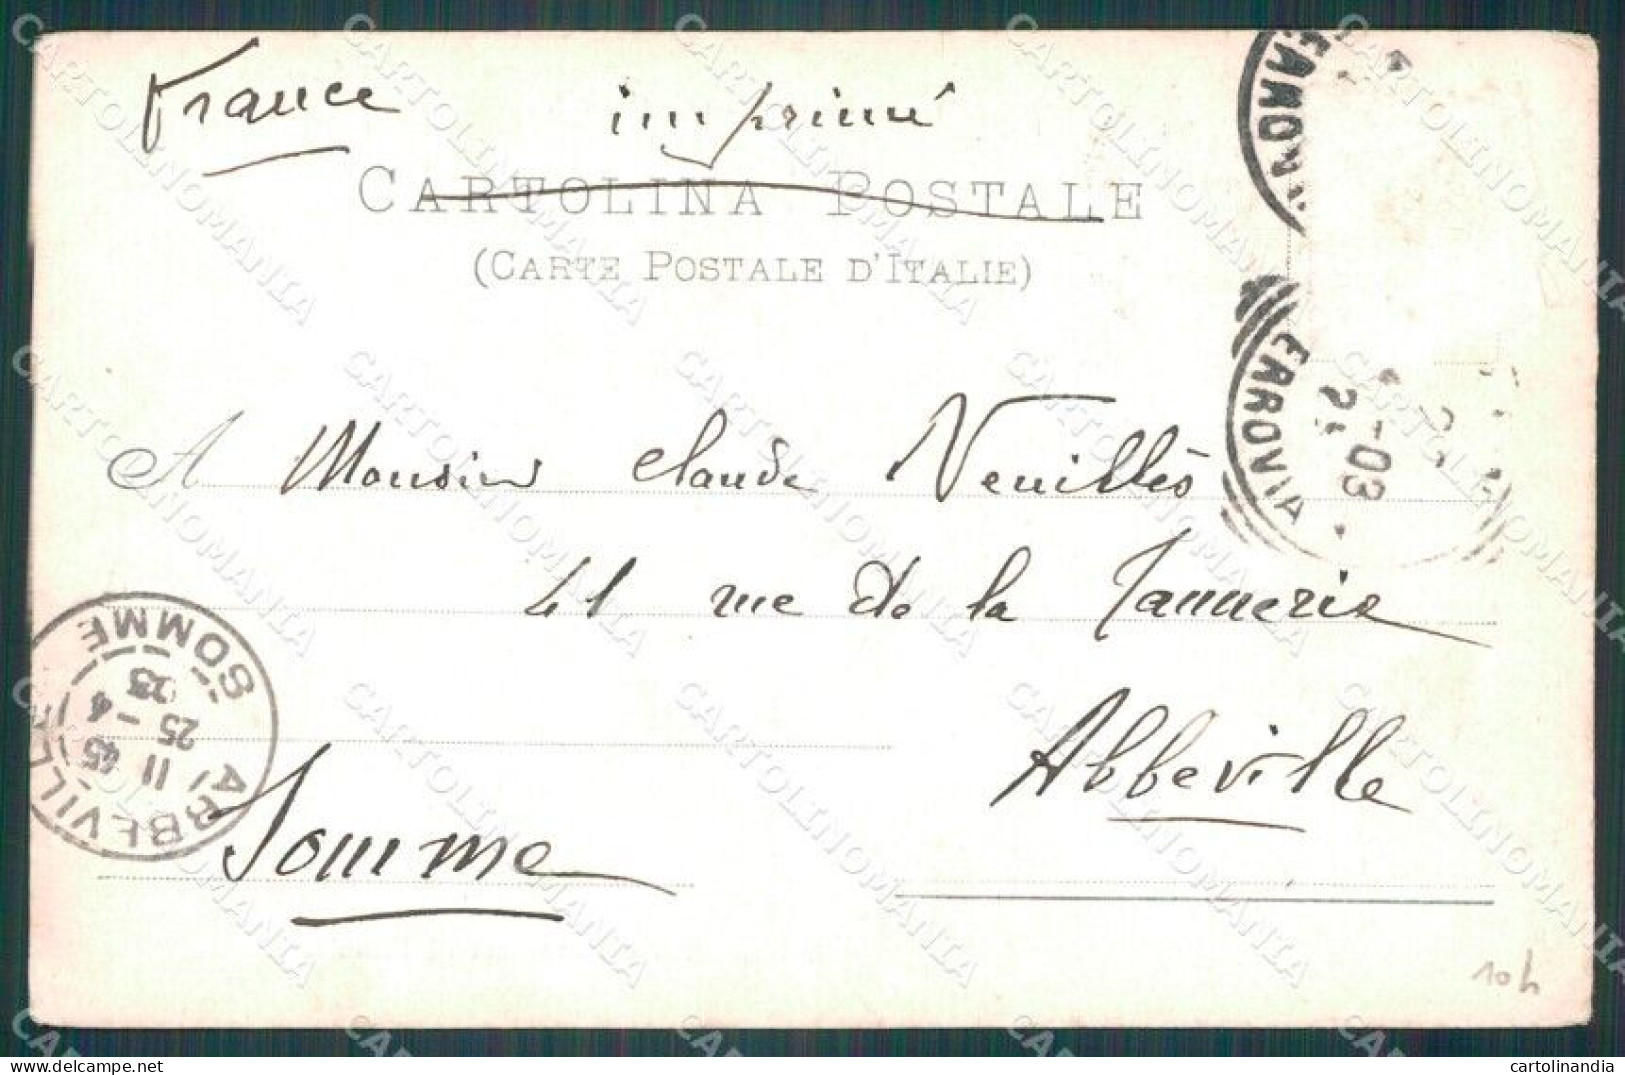 France imprimé
CARTOLINA POSTALE
(CARTE POSTALE D'ITALIE)
A Monsieur Claude
41 rue de la Tannerie
Abbeville
Somme
ABBEVILLE
SOMME
11 45
25 - 4
03
ERROVIA
-03
10 h
CARTOLINOMANIA
cartolinandia